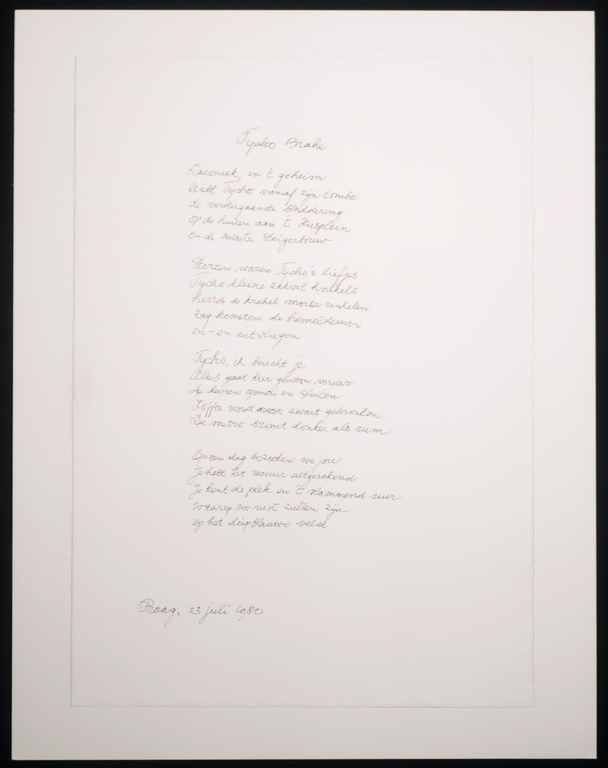 Tycho Brahe
Laconiek, in 't geheim
leidt Tycho vanaf zijn tombe
de verdergaande
op de huizen aan 't
en de zwarte steigerbouw
Sterren waren Tycho's liefjes
Tycho kleine krekels
hoorde de krekel morse
zag kometen de hemeldeuren
in- en uitvliegen
Tycho, ik bericht je
Alles gaat hier gewoon verder
de deuren openen en sluiten
Koffie wordt zwart gedronken
De metro bromt donker als rum
Op een dag bezoeken we jou
Je hebt het secuur uitgerekend
Je kent de plek en 't vlammend uur
waarop we met zullen zijn
op het diepblauwe veld
Praag, 23 juli 1980